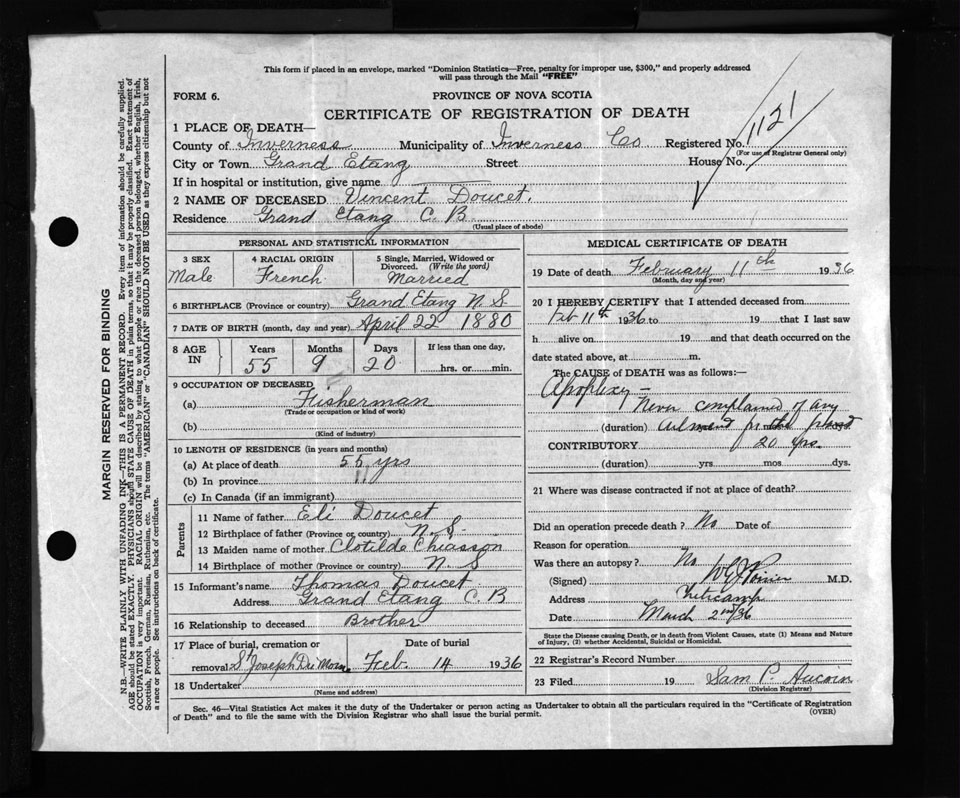 This form if placed in an envelope, marked "Dominion Statistics—Free, penalty for improper use, $300," and properly addressed
will pass through the Mail "FREE"
FORM 6.
PROVINCE OF NOVA SCOTIA
CERTIFICATE OF REGISTRATION OF DEATH
1121
1 PLACE OF DEATH—
County of Inverness Municipality of Inverness Co Registered No.
(For use of Registrar General only)
City or Town Grand Etang Street House No.
If in hospital or institution, give name
2 NAME OF DECEASED Vincent Doucet.
Residence Grand Etang C. B
(Usual place of abode)
PERSONAL AND STATISTICAL INFORMATION
3 SEX 4 RACIAL ORIGIN 5 Single, Married, Widowed or
Divorced. (Write the word)
Male French Married
6 BIRTHPLACE (Province or country) Grand Etang N. S.
7 DATE OF BIRTH (month, day and year) April 22 1880
8 AGE IN Years Months Days If less than one day,
55 9 20 hrs. or min.
9 OCCUPATION OF DECEASED
(a) Fisherman
(Trade or occupation or kind of work)
(b)
(Kind of industry)
10 LENGTH OF RESIDENCE (in years and months)
(a) At place of death 55 yrs
(b) In province "
(c) In Canada (if an immigrant)
Parents
11 Name of father Eli Doucet
12 Birthplace of father (Province or country) N. S.
13 Maiden name of mother Clotilde Chiasson
14 Birthplace of mother (Province or country) N S
15 Informant's name Thomas Doucet
Address Grand Etang C. B
16 Relationship to deceased Brother
17 Place of burial, cremation or Date of burial
removal St Joseph Du Moine Feb. 14 1936
18 Undertaker
(Name and address)
MEDICAL CERTIFICATE OF DEATH
19 Date of death February 11th 1936
(Month, day and year)
20 I HEREBY CERTIFY that I attended deceased from
Feb 11th 1936 to 19 that I last saw
h alive on 19 and that death occurred on the
date stated above, at m.
The CAUSE of DEATH was as follows:—
Apoplexy —
Never complained of any
(duration) ailment for the past
CONTRIBUTORY 20 yrs.
(duration) yrs mos dys.
21 Where was disease contracted if not at place of death?
Did an operation precede death? No Date of
Reason for operation
Was there an autopsy? No
(Signed) Poirier M.D.
Address Cheticamp
Date March 2nd/36
State the Disease causing Death, or in death from Violent Causes, state (1) Means and Nature
of Injury, (2) whether Accidental, Suicidal or Homicidal.
22 Registrar's Record Number
23 Filed 19 Sam P. Aucoin
(Division Registrar)
Sec. 46—Vital Statistics Act makes it the duty of the Undertaker or person acting as Undertaker to obtain all the particulars required in the "Certificate of Registration
of Death" and to file the same with the Division Registrar who shall issue the burial permit.
(OVER)
MARGIN RESERVED FOR BINDING
N.B.—WRITE PLAINLY WITH UNFADING INK—THIS IS A PERMANENT RECORD. Every item of information should be carefully supplied.
AGE should be stated EXACTLY. PHYSICIANS should STATE CAUSE OF DEATH in plain terms, so that it may be properly classified. Exact statement of
OCCUPATION is very important. RACIAL ORIGIN will be described by stating to what people or race the deceased person belonged, whether English, Irish,
Scottish, French, German, Russian, Ruthenian, etc. The terms "AMERICAN" or "CANADIAN" SHOULD NOT BE USED as they express citizenship but not
a race or people. See instructions on back of certificate.